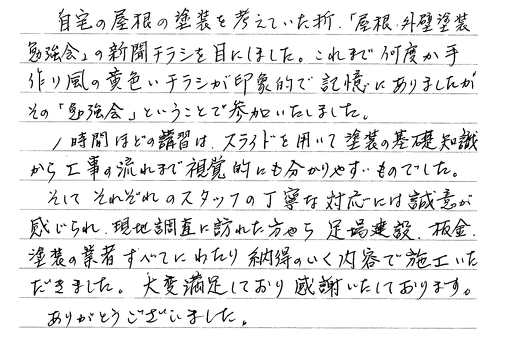 自宅の屋根の塗装を考えていた折、「屋根・外壁塗装
勉強会」の新聞チラシを目にしました。これまで何度か手
作り風の黄色いチラシが印象的で記憶にありましたが
その「勉強会」ということで参加いたしました。
1時間ほどの講習は、スライドを用いて塗装の基礎知識
から工事の流れまで視覚的にも分かりやすいものでした。
そして それぞれのスタッフの丁寧な対応には誠意が
感じられ、現地調査に訪れた方から 足場建設、板金、
塗装の業者すべてにわたり 納得のいく内容で施工いた
だきました。大変満足しており 感謝いたしております。
ありがとうございました。